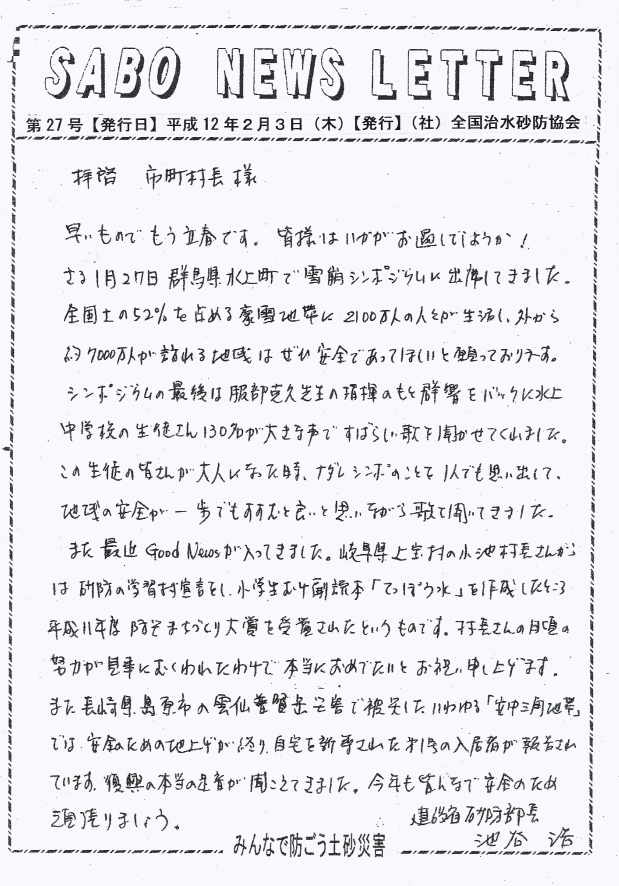 SABO NEWS LETTER
第27号【発行日】平成12年2月3日(木)【発行】(社)全国治水砂防協会
拝啓 市町村長様
早いものでもう立春です。皆様はいかがお過しでしょうか!
さる1月27日群馬県水上町で雪崩シンポジウムに出席してきました。
全国土の52%を占める豪雪地帯に2100万人の人々が生活し、外から
約7000万人が訪れる地域はぜひ安全であってほしいと願っております。
シンポジウムの最後は服部克久先生の指揮のもと群響をバックに水上
中学校の生徒さん130名が大きな声ですばらしい歌を聞かせてくれました。
この生徒の皆さんが大人になった時、ナダレシンポのことを1人でも思い出して、
地域の安全が一歩でもすすむと良いと思いながら歌を聞いてきました。
また最近Good Newsが入ってきました。岐阜県上宝村の小池村長さんから
は砂防の学習村宣言をし、小学生むけ副読本「てっぽう水」を作成したところ
平成11年度防災まちづくり大賞を受賞されたというものです。村長さんの日頃の
努力が見事にむくわれたわけで本当におめでたいとお祝い申し上げます。
また長崎県島原市の雲仙普賢岳災害で被災した、いわゆる「安中三角地帯」
では、安全のための地上げが終り、自宅を新築された市民の入居者が報告され
ています。復興の本当の足音が聞こえてきました。今年も皆んなで安全のため
頑張りましょう。
建設省砂防部長
池谷 浩
みんなで防ごう土砂災害